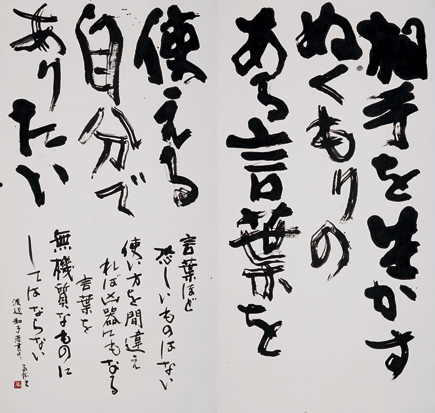 相手を生かす
ぬくもりの
ある言葉を
使える
自分で
ありたい
言葉ほど
恐しいものはない
使い方を間違え
れば凶器にもなる
言葉を
無機質なものに
してはならない
渡辺和子